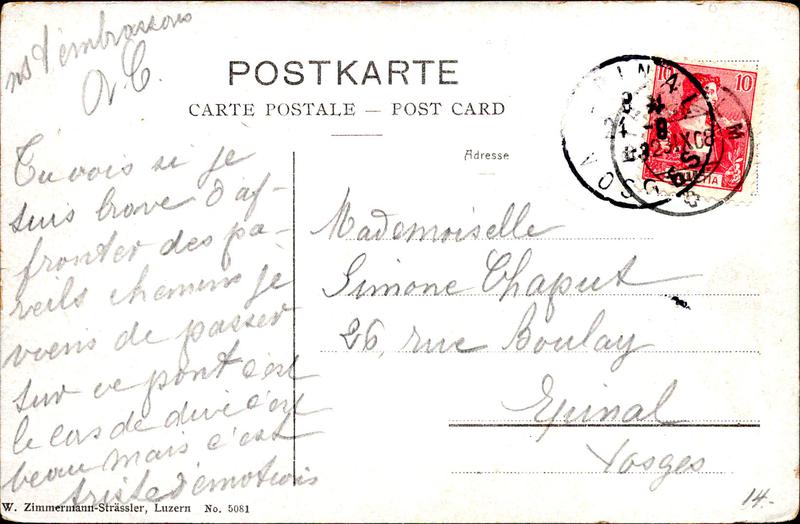 ns t'embrassons
POSTKARTE
CARTE POSTALE — POST CARD
Adresse
10 10
Tu vois si je
suis brave d'af-
fronter des pa-
reils chemins je
viens de passer
sur ce pont c'est
le cas de dire c'est
beau mais c'est
triste d'émotions
Mademoiselle
Simone Chaput
26, rue Boulay
Epinal
Vosges
14.-
W. Zimmermann-Strässler, Luzern No. 5081